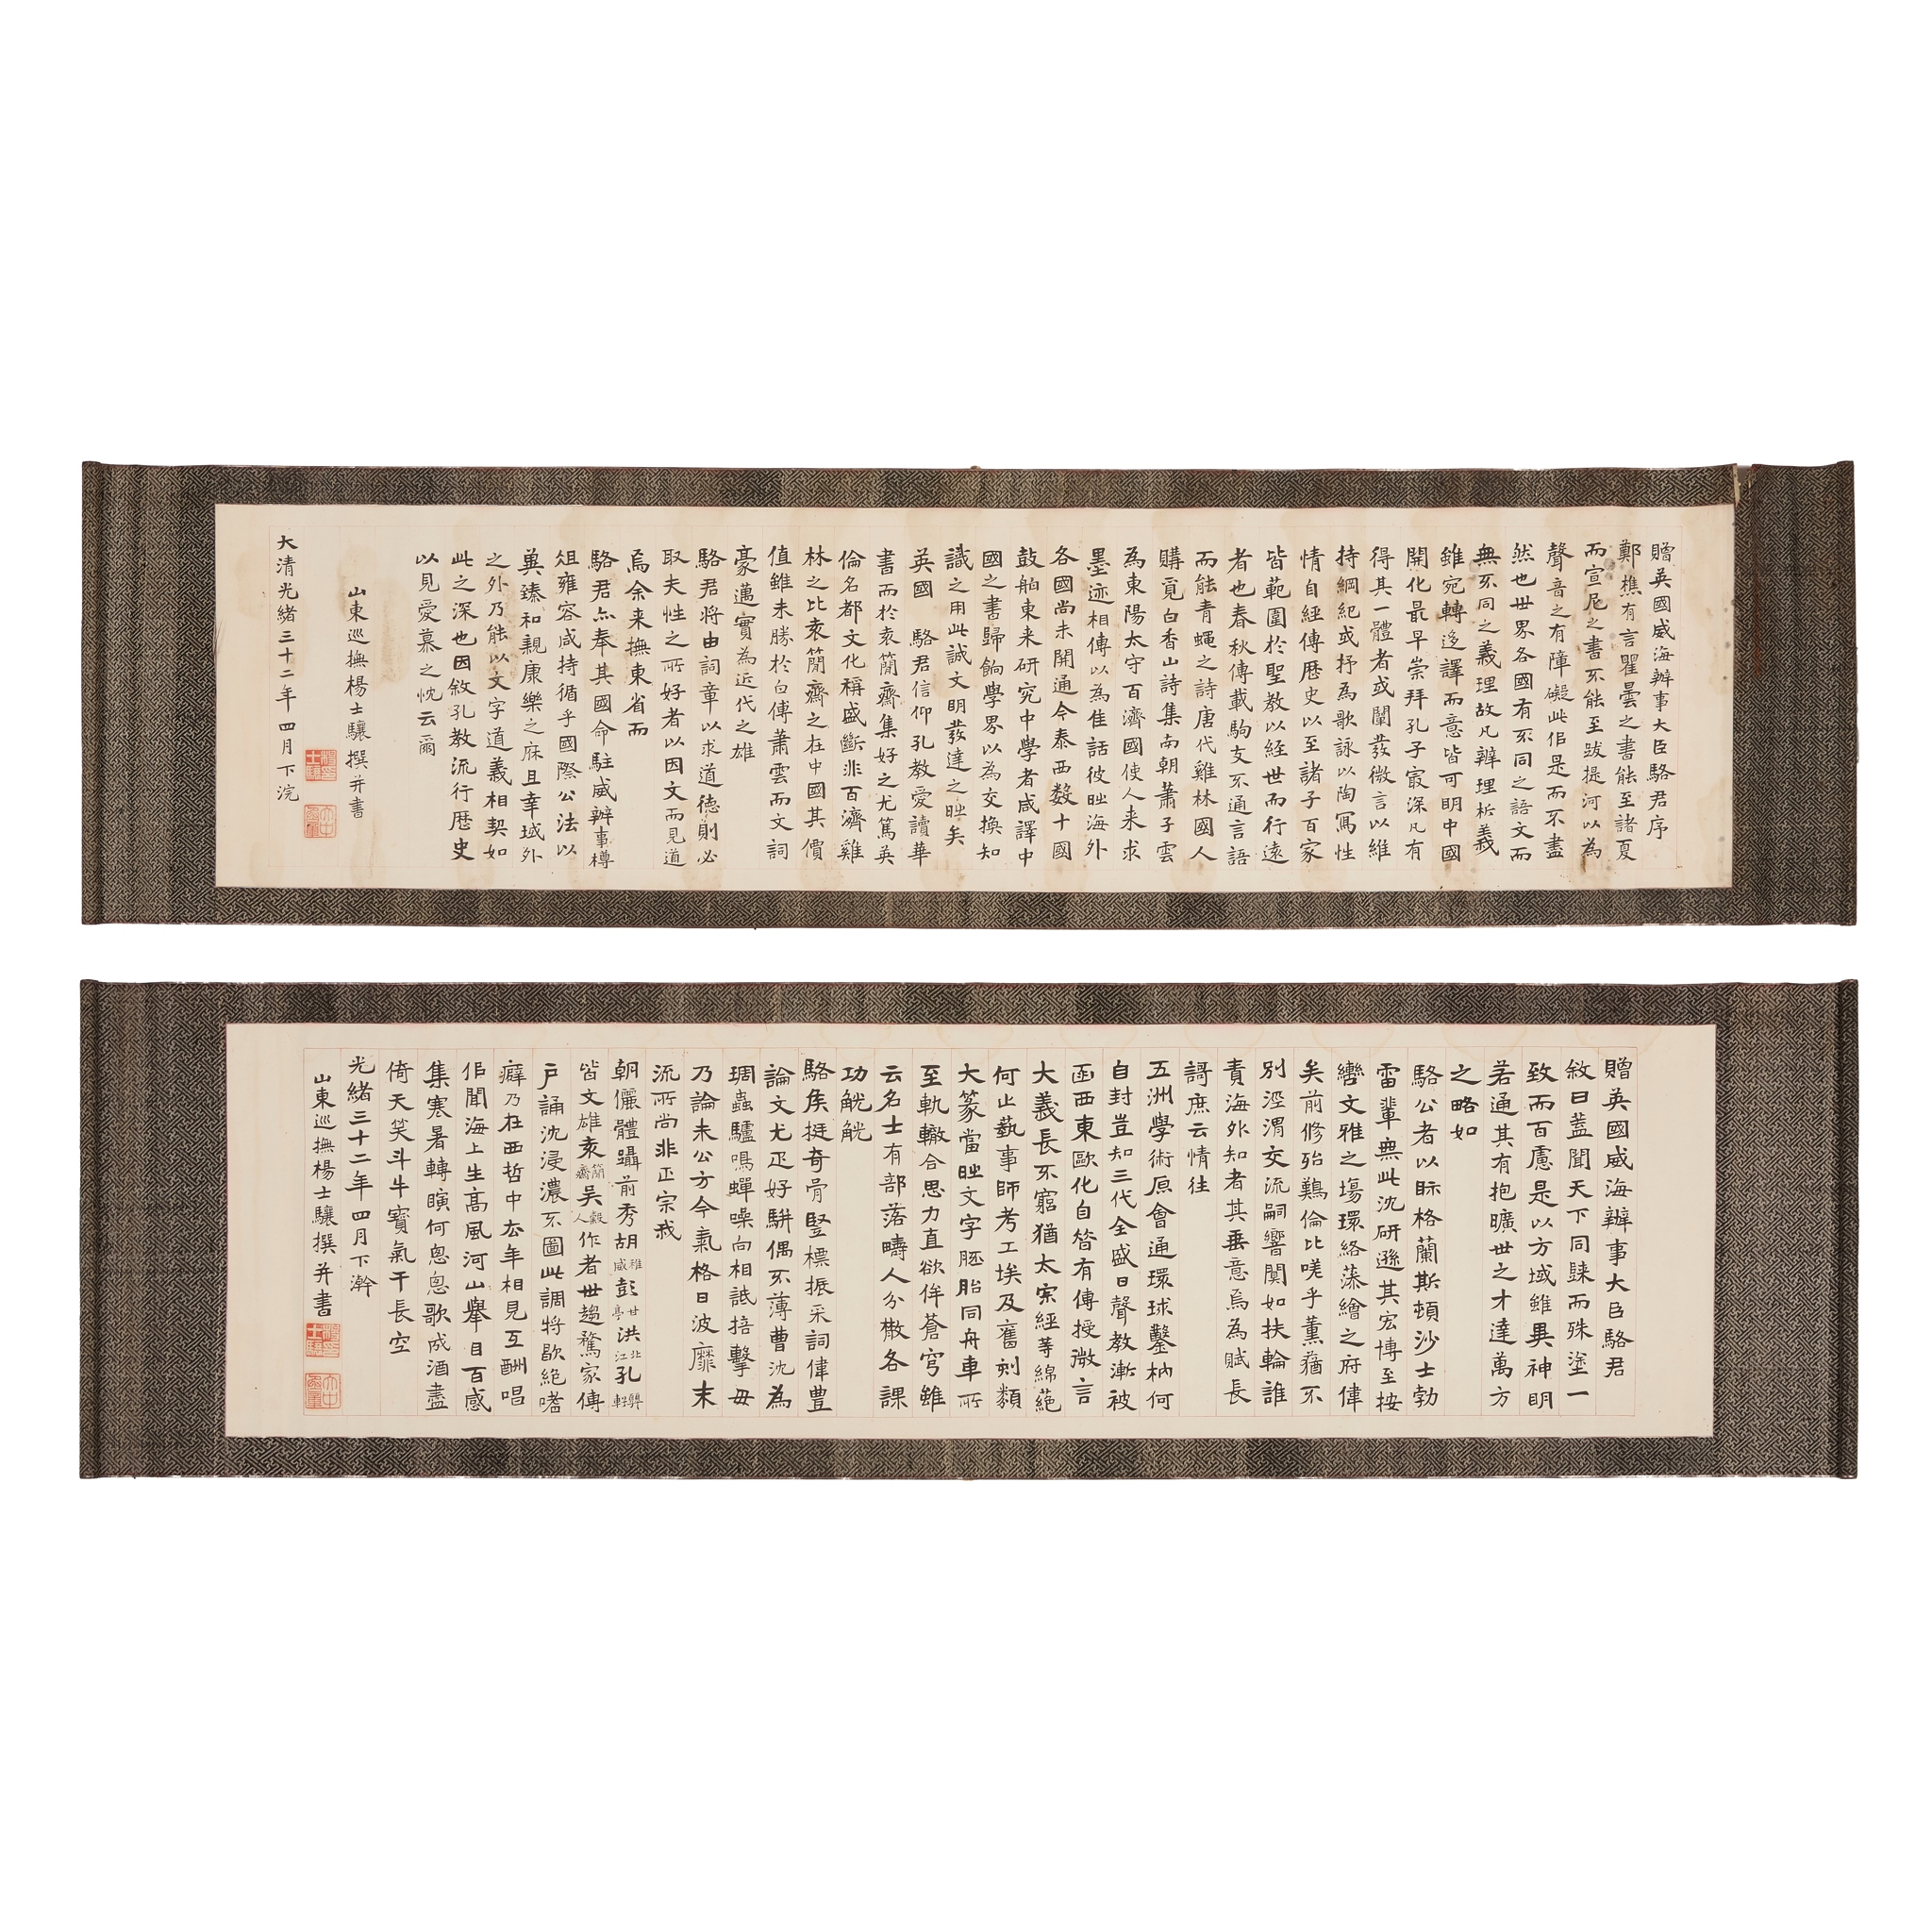 贈英國威海辦事大臣駱君序
鄭樵有言瞿曇之書能至諸夏
而宣尼之書不能至跋提河以為
聲音之有障礙此但是而不盡
然也世界各國有不同之語文而
無不同之義理故凡辨理析義
雖宛轉迻譯而意皆可明中國
開化最早崇拜孔子最深凡有
得其一體者或闡發微言以維
持綱紀或抒為歌詠以陶寫性
情自經傳歷史以至諸子百家
皆範圍於聖教以經世而行遠
者也春秋傳載駒支不通言語
而能青蠅之詩唐代雞林國人
購覓白香山詩集南朝蕭子雲
為東陽太守百濟國使人來求
墨迹相傳以為佳話彼時海外
各國尚未開通今泰西數十國
鼓舶東來研究中學者咸譯中
國之書歸餉學界以為交換知
識之用此誠文明發達之時矣
英國 駱君信仰孔教愛讀華
書而於袁簡齋集好之尤篤英
倫名都文化稱盛斷非百濟雞
林之比袁簡齋之在中國其價
值雖未勝於白傅蕭雲而文詞
豪邁實為近代之雄
駱君將由詞章以求道德則必
取夫性之所好者以因文而見道
焉余來撫東省而
駱君亦奉其國命駐威辦事樽
俎雍容咸持循乎國際公法以
冀臻和親康樂之庥且幸域外
之外乃能以文字道義相契如
此之深也因敘孔教流行歷史
以見愛慕之忱云爾
山東巡撫楊士驤撰并書
大清光緒三十二年四月下浣
贈英國威海辦事大臣駱君
敘曰蓋聞天下同歸而殊塗一
致而百慮是以方域雖異神明
若通其有抱曠世之才達萬方
之略如
駱公者以眎格蘭斯頓沙士勃
雷輩無此沈研遜其宏博至按
轡文雅之場環絡藻繪之府偉
矣前修殆鷄倫比嗟乎薰蕕不
別涇渭交流嗣響闃如扶輪誰
責海外知者其垂意焉為賦長
謌庶云情往
五洲學術原會通環球鑿枘何
自封豈知三代全盛日聲教漸被
函西東歐化自昔有傳授微言
大義長不窮猶太宗經等綿蕝
何止執事師考工埃及舊刻類
大篆當時文字胚胎同舟車所
至軌轍合思力直欲侔蒼穹雖
云名士有部落疇人分檄各課
功觥觥
駱侯挺奇骨豎標振采詞偉豊
論文尤疋好駢偶不薄曹沈為
琱蟲驢鳴蟬噪向相詆掊擊毋
乃論未公方今氣格日波靡末
流所尚非正宗我
朝儷體躡前秀胡稚威彭甘亭洪北江孔顨軒
皆文雄袁簡齋吳穀人作者世趨騖家傳
戶誦沈浸濃不圖此調將歇絕嗜
癖乃在西哲中去年相見互酬唱
但聞海上生高風河山舉目百感
集寒暑轉瞚何悤悤歌成酒盡
倚天笑斗牛寶氣干長空
光緒三十二年四月下澣
山東巡撫楊士驤撰并書